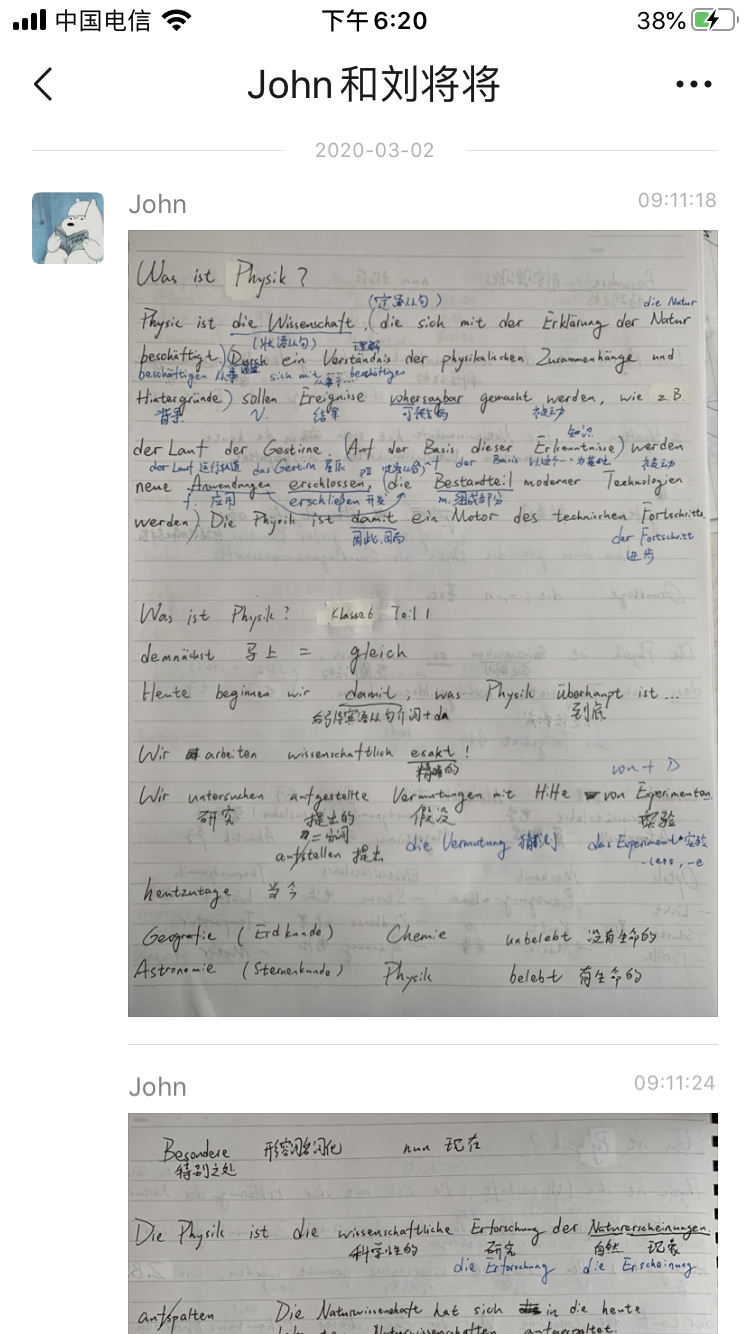 中国电信 下午6:20 38%
John和刘将将
2020-03-02
John 09:11:18
Was ist Physik?
(定语从句) die Natur
Physic ist die Wissenschaft, (die sich mit der Erklärung der Natur
(状语从句) 理解
beschäftigt.) (Durch ein Verständnis der physikalischen Zusammenhänge und
beschäftigen 从事 sich mit ... beschäftigen
Hintergründe) sollen Ereignisse vohersagbar gemacht werden, wie z.B.
背景 V. 结果 可预言的 被动
知识
der Lauf der Gestirne. (Auf der Basis dieser Erkenntnisse) werden
der Lauf 运行轨道 das Gestirn 星辰 auf der Basis 以这个…为基础 被动
neue Anwendungen erschlossen, (die Bestandteil moderner Technologien
f. 应用 erschließen 开发 m. 组成部分
werden) Die Physik ist damit ein Motor des technischen Fortschritts
因此,因而 der Fortschritt
进步
Was ist Physik? Klasse 6 Teil 1
demnächst 马上 = gleich
Heute beginnen wir damit, was Physik überhaupt ist ...
后引导宾语从句介词+da 到底
Wir arbeiten wissenschaftlich exakt!
精确的 von + D
Wir untersuchen aufgestellte Vermutungen mit Hilfe von Experimenten.
研究 提出的 假设 实验
第二分词 die Vermutung 猜测 das Experiment 实验
aufstellen 提出 -(e)s, -e
heutzutage 当今
Geografie (Erdkunde) Chemie unbelebt 没有生命的
Astronomie (Sternenkunde) Physik belebt 有生命的
John 09:11:24
Besondere 形容词名词化 nun 现在
特别之处
Die Physik ist die wissenschaftliche Erforschung der Naturerscheinungen.
科学性的 研究 自然 现象
die Erforschung die Erscheinung
aufspalten Die Naturwissenschaft hat sich in die heute
Naturwissenschaften aufgespaltet.